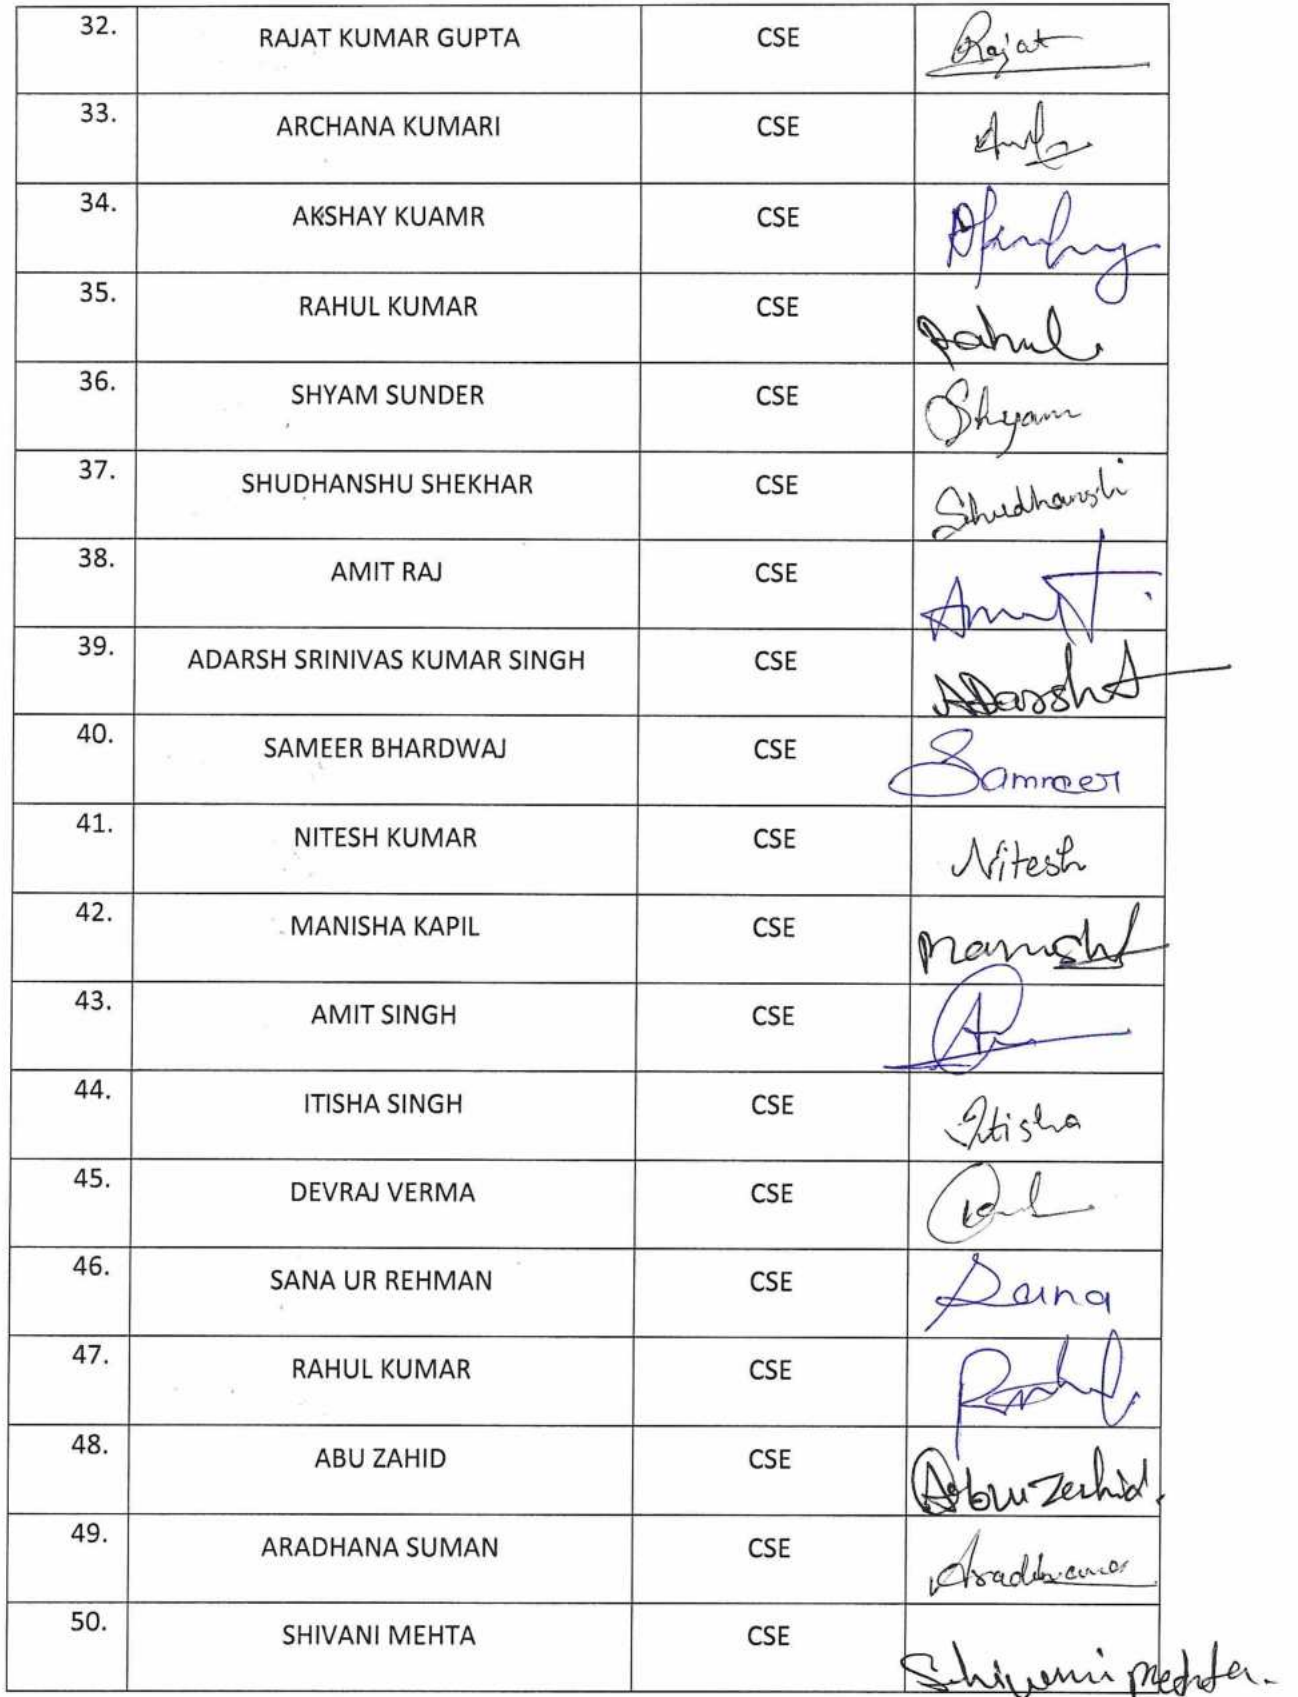 32. RAJAT KUMAR GUPTA CSE Rajat
33. ARCHANA KUMARI CSE
34. AKSHAY KUAMR CSE
35. RAHUL KUMAR CSE Rahul
36. SHYAM SUNDER CSE Shyam
37. SHUDHANSHU SHEKHAR CSE Shudhanshi
38. AMIT RAJ CSE Amit
39. ADARSH SRINIVAS KUMAR SINGH CSE ADarsh
40. SAMEER BHARDWAJ CSE Sameer
41. NITESH KUMAR CSE Nitesh
42. MANISHA KAPIL CSE Manisha
43. AMIT SINGH CSE
44. ITISHA SINGH CSE Itisha
45. DEVRAJ VERMA CSE
46. SANA UR REHMAN CSE Sana
47. RAHUL KUMAR CSE Rahul
48. ABU ZAHID CSE Abu Zahid.
49. ARADHANA SUMAN CSE Aradhana
50. SHIVANI MEHTA CSE Shivani Mehta.